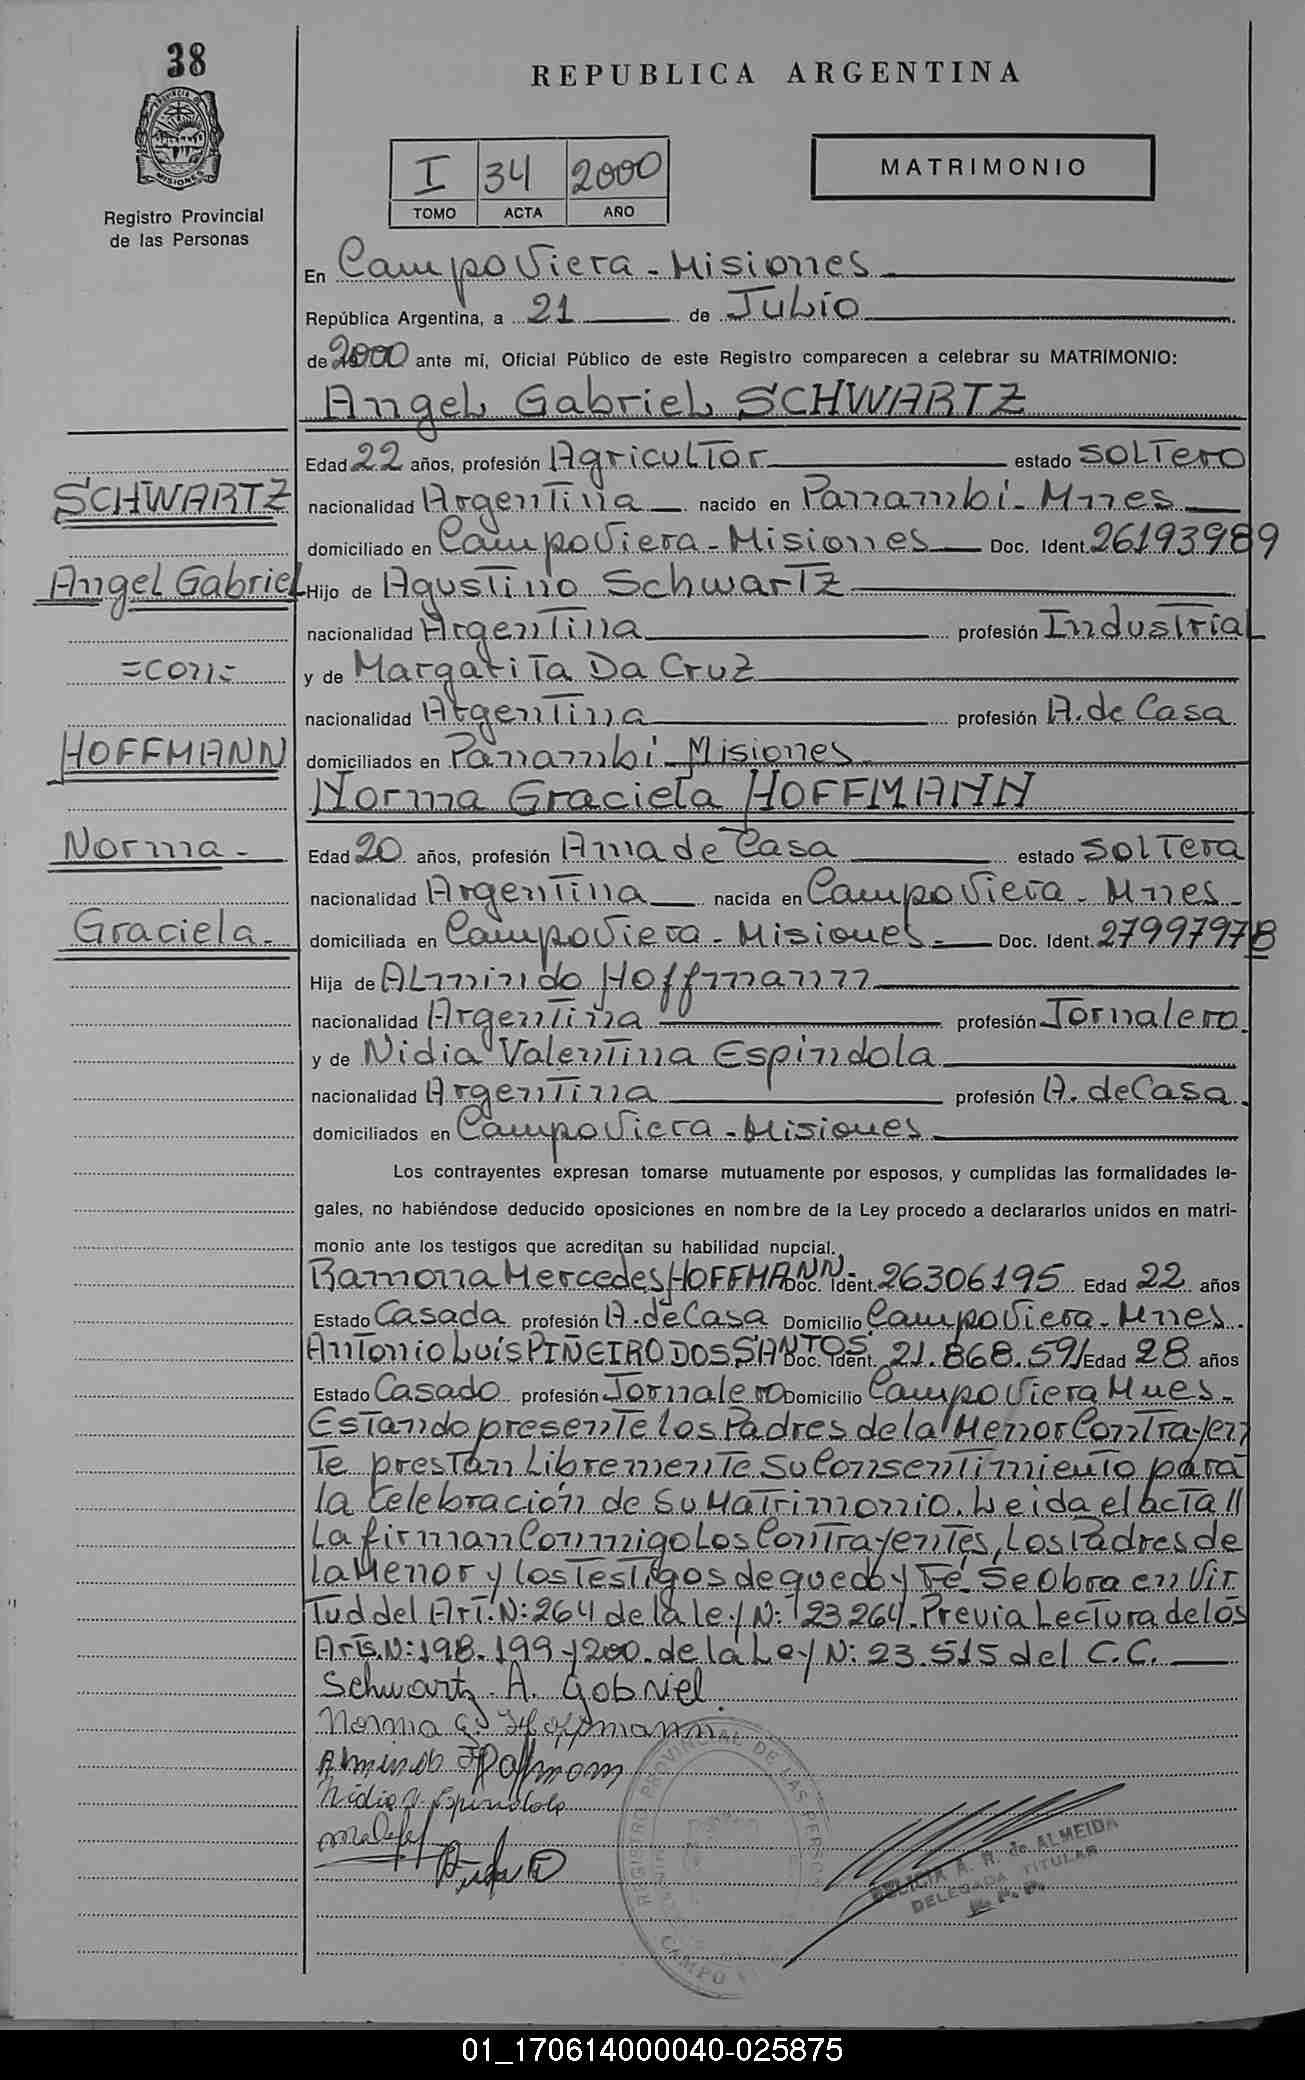 38
REPUBLICA ARGENTINA
MISIONES
Registro Provincial
de las Personas
I 34 2000
TOMO ACTA AÑO
MATRIMONIO
En Campo Viera - Misiones
República Argentina, a 21 de Julio
de 2000 ante mí, Oficial Público de este Registro comparecen a celebrar su MATRIMONIO:
Angel Gabriel SCHWARTZ
Edad 22 años, profesión Agricultor estado Soltero
SCHWARTZ
nacionalidad Argentina nacido en Panambi - Mnes
domiciliado en Campo Viera - Misiones Doc. Ident. 26193989
Angel Gabriel
Hijo de Agustino Schwartz
nacionalidad Argentina profesión Industrial
=con=
y de Margarita Da Cruz
nacionalidad Argentina profesión A. de Casa
HOFFMANN
domiciliados en Panambi Misiones
Norma Graciela HOFFMANN
Norma -
Edad 20 años, profesión Ama de Casa estado Soltera
nacionalidad Argentina nacida en Campo Viera - Mnes -
Graciela -
domiciliada en Campo Viera - Misiones - Doc. Ident. 27997978
Hija de Almindo Hoffmann
nacionalidad Argentina profesión Jornalero.
y de Nidia Valentina Espindola
nacionalidad Argentina profesión A. de Casa.
domiciliados en Campo Viera - Misiones
Los contrayentes expresan tomarse mutuamente por esposos, y cumplidas las formalidades le-
gales, no habiéndose deducido oposiciones en nombre de la Ley procedo a declararlos unidos en matri-
monio ante los testigos que acreditan su habilidad nupcial.
Ramona Mercedes HOFFMANN - Doc. Ident. 26306195 Edad 22 años
Estado Casada profesión A. de Casa Domicilio Campo Viera - Mnes.
Antonio Luis PIÑEIRO DOS SANTOS. Doc. Ident. 21.868.591 Edad 28 años
Estado Casado profesión Jornalero Domicilio Campo Viera Mnes -
Estando presente los Padres de la Menor Contrayen
Te prestan Libremente Su Consentimiento para
la Celebración de Su Matrimonio. Leida el acta //
La firman Conmigo Los Contrayentes, Los Padres de
la Menor y los Testigos de que doy Fé. Se Obra en Vir
Tud del Art. N: 264 de la ley N: 23264. Previa Lectura de los
Arts. N: 198. 199 y 200. de la Ley N: 23.515 del C.C.
Schwartz A. Gabriel
Norma G. Hoffmann
Almindo Hoffmann
Nidia V. Espindola
REGISTRO PROVINCIAL DE LAS PERSONAS
CAMPO VIERA
FELICIA A. R. de ALMEIDA
DELEGADA TITULAR
01_170614000040-025875